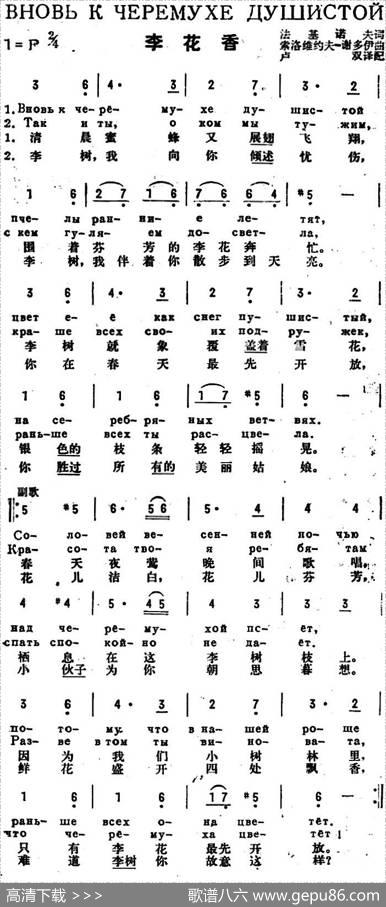 ВНОВЬ К ЧЕРЕМУХЕ ДУШИСТОЙ
李花香
法基诺夫词
1=F 2/4
索洛维约夫-谢多伊曲
卢双译配
3 6 | 4· 3 | 2 7 | 3· 2 |
1. Вновь к че-ре- му- хе ду- шис- той
2. Так и ты, о ком мы ту- жим,
1. 清晨蜜蜂又展翅飞翔,
2. 李树,我向你倾述忧伤,
1 6 | 2 7 1 6 | 7 6 6 4 | #5 — |
пче- лы ран- ни- е ле- тят,
с кем гу-ля- ем до-свет- ла,
围着芬芳的李花奔忙。
李树,我伴着你散步到天亮。
3 6 | 4· 3 | 2 7 | 3· 2 |
цвет е- ё как снег пу- шис- тый,
кра- ше всех сво- их под- ру- жек,
李树就象覆盖着雪花,
你在春天最先开放,
1 6 | 1 6 | 1 7 #5 | 6 — |
на се- реб-ря- ных вет- вях.
рань-ше всех ты рас- цве- ла.
银色的枝条轻轻摇晃。
你胜过所有的美丽姑娘。
副歌
5 #5 | 6· 5 6 | 5· 4 | 4 4 |
Со- ло- вей ве- сен- ней но- чью
Кра- со- та тво- я ре- бя- там
春天夜莺晚间歌唱,
花儿洁白,花儿芬芳,
4 #4 | 5· 4 5 | 4 3 | 3 3 |
над че- рё- му- хой по- ёт,
спать спо- кой- но не да- ёт.
栖息在这李树枝上。
小伙子为你朝思暮想。
3 6 | 4· 3 | 2 7 | 3· 2 |
по- то- му, что в на- шей ро- ще
Раз- ве в том ты ви- но- ва- та,
因为我们小树林里,
鲜花盛开四处飘香,
1 6 | 1 6 | 1 7 #5 | 6 — :|
рань- ше всех о- на цве- тёт.
что че- рё- му- ха цве- тёт!
只有李花最先开放。
难道李树你故意这样?
高清下载 >>>
歌谱八六 www.gepu86.com